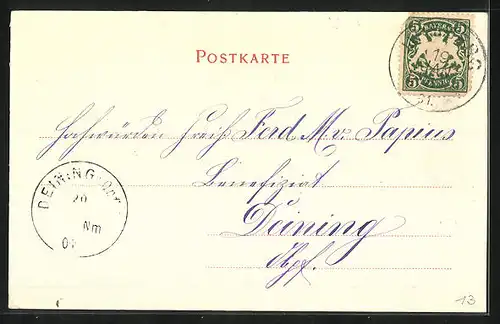 BAYERN
5 5
PFENNIG
19
01.
POSTKARTE
Hochwürden Herrn Ferd. M. v. Papius
Benefiziat
Deining
Opf.
DEINING
20
Nm
01
13